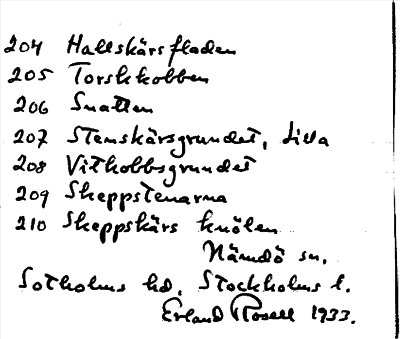 204 Hallskärsfladen
205 Torskkobben
206 Snatten
207 Stenskärsgrundet, Lilla
208 Vitkobbsgrundet
209 Skeppstenarna
210 Skeppskärs knölen
Nämdö sn.
Sotholms hd. Stockholms l.
Erland Rosell 1933.